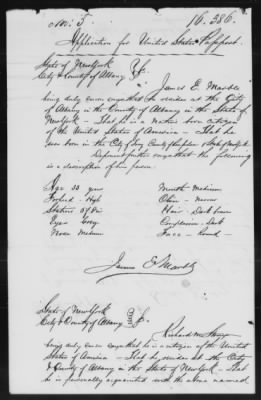 No. 5
16.386.
Application for United States Passport.
State of New York
City & County of Albany } ss.
James E. Marble
being duly sworn says that he resides at the City
of Albany in the County of Albany in the State of
New York – That he is a native born citizen
of the United States of America – That he
was born in the City of Troy County of Rensselaer & State of New York
Deponent further says that the following
is a description of his person.
Age 33 years
Forhed High
Stature 5f 8in
Eyes Grey
Nose Medium
Mouth Medium
Chin –
Hair – Dark brown
Complexion – Dark
Face – Round –
James E Marble
State of New York
City & County of Albany } ss.
Richard M.
being duly sworn says that he is a citizen of the United
States of America – That he resides at the City
& County of Albany in the State of New York – That
he is personally acquainted with the above named